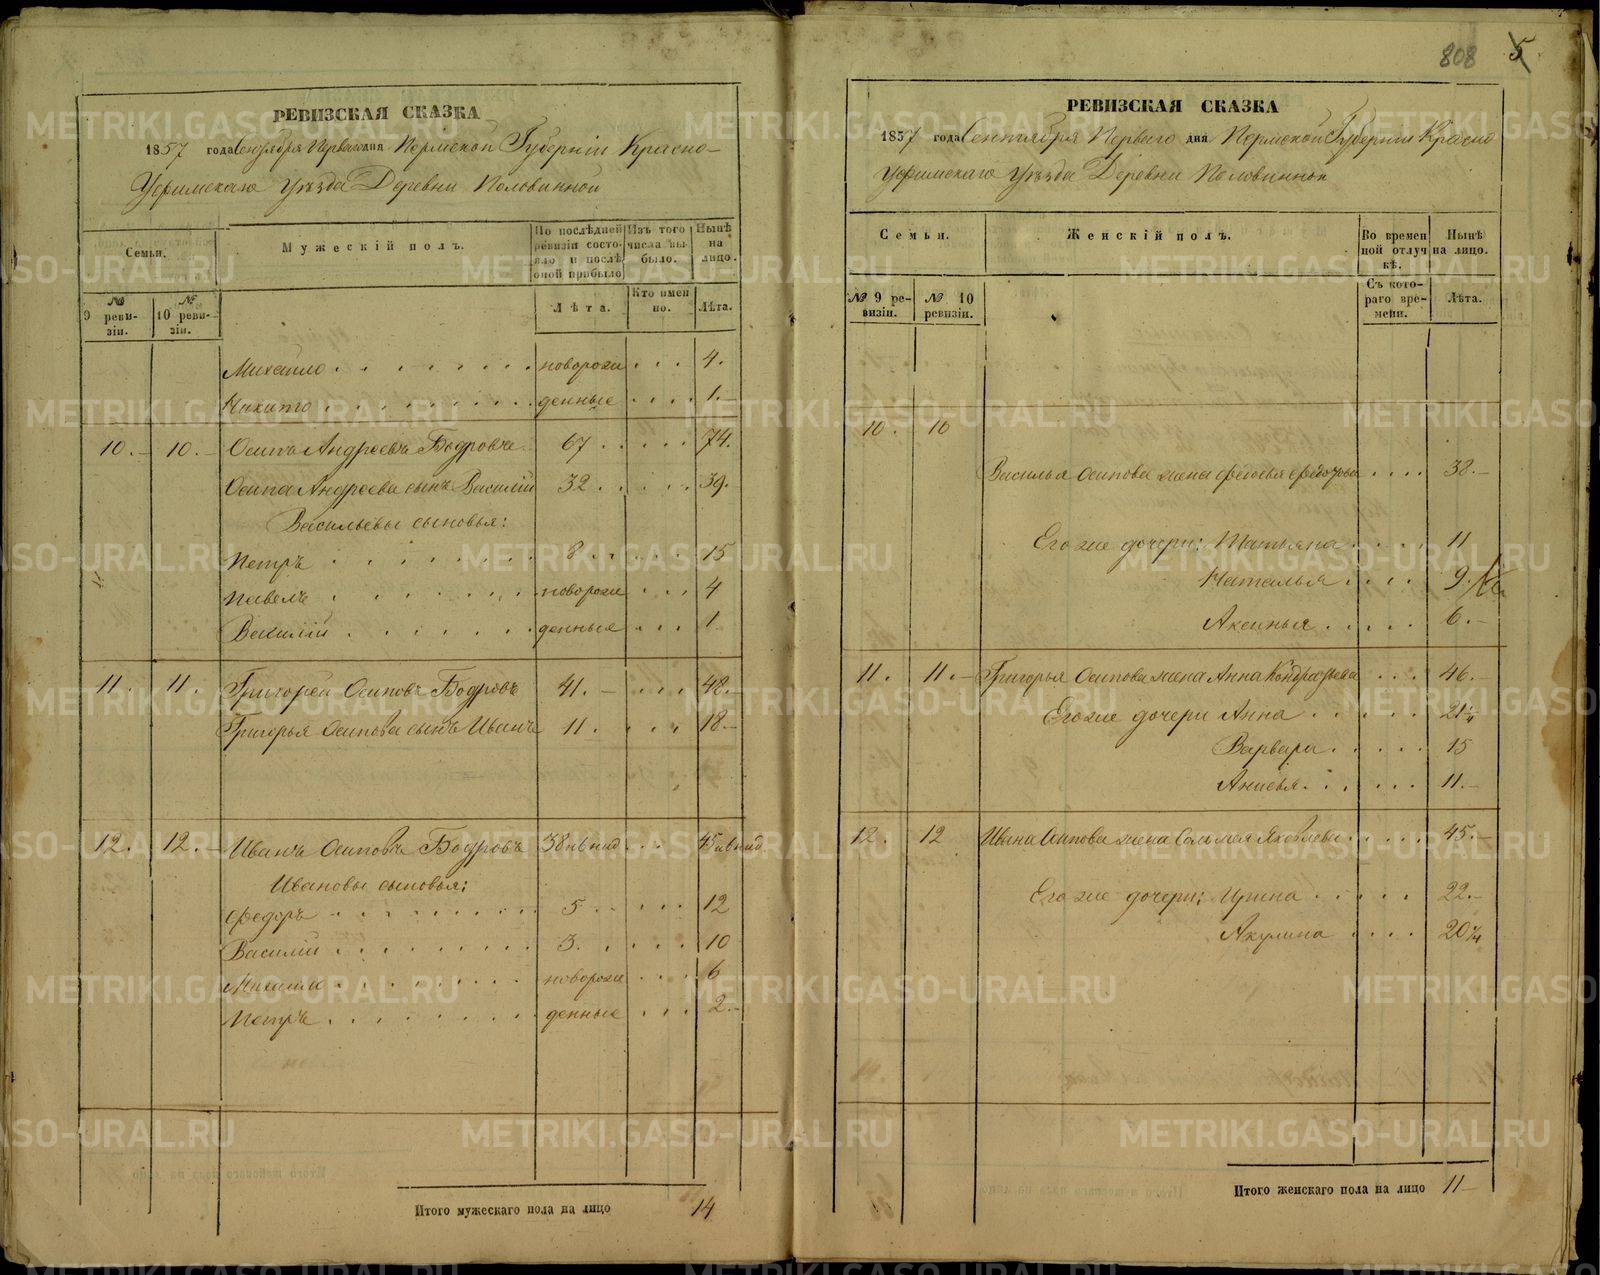 808 5
РЕВИЗСКАЯ СКАЗКА
1857 года Сентября Перваго дня Пермской Губерніи Красно-
Уфимскаго Уѣзда Деревни Половинной
Семьи.
Мужескій полъ.
По послѣдней ревизіи состояло и послѣ оной прибыло
Изъ того числа выбыло.
Нынѣ на лицо.
№ 9 ревизіи.
№ 10 ревизіи.
Лѣта.
Кто именно.
Лѣта.
Михаило . . . . . . . . новорож . . . 4.
Никито . . . . . . . . . денные . . . . 1.
10. 10. Осипъ Андреевъ Бодровъ 67 . . . . . 74.
Осипа Андреева сынъ Василій 32 . . . . . 39.
Васильевы сыновья:
Петръ . . . . . . . 8 . . . . . 15
Павелъ . . . . . . . . новорож . . . 4
Василій . . . . . . . денные . . . 1
11. 11. Григорей Осиповъ Бодровъ 41. . . . 48.
Григорья Осипова сынъ Иванъ 11. . . . 18.
12. 12. Иванъ Осиповъ Бодровъ 38 . . . 45
Ивановы сыновья:
Федоръ . . . . . . . . . 5 . . . . . 12
Василій . . . . . . . . . 3. . . . . . 10
Михаило . . . . . . . . новорож . . . . 6
Петръ . . . . . . . . . денные . . . 2.
Итого мужескаго пола на лицо 14
РЕВИЗСКАЯ СКАЗКА
1857 года Сентября Перваго дня Пермской Губерніи Красно
Уфимскаго Уѣзда Деревни Половинной
Семьи.
Женскій полъ.
Во временной отлучкѣ.
Нынѣ на лицо.
№ 9 ревизіи.
№ 10 ревизіи.
Съ котораго времени.
Лѣта.
10. 10
Василья Осипова жена Федосья Федорова . . . . 38.
Его же дочери: Татьяна . . . . 11
Наталья . . . . 9.
Аксинья . . . . . 6.
11. 11. Григорья Осипова жена Анна Кондратьева . . . 46.
Его же дочери Анна . . . . . . 21 1/4
Варвара . . . . . 15
Анисья . . . . . . 11.
12. 12 Ивана Осипова жена Саломая Яковлева . . . . . 45.
Его же дочери: Ирина . . . . . 22.
Акулина . . . . 20 1/4
Итого женскаго пола на лицо 11
METRIKI.GASO-URAL.RU